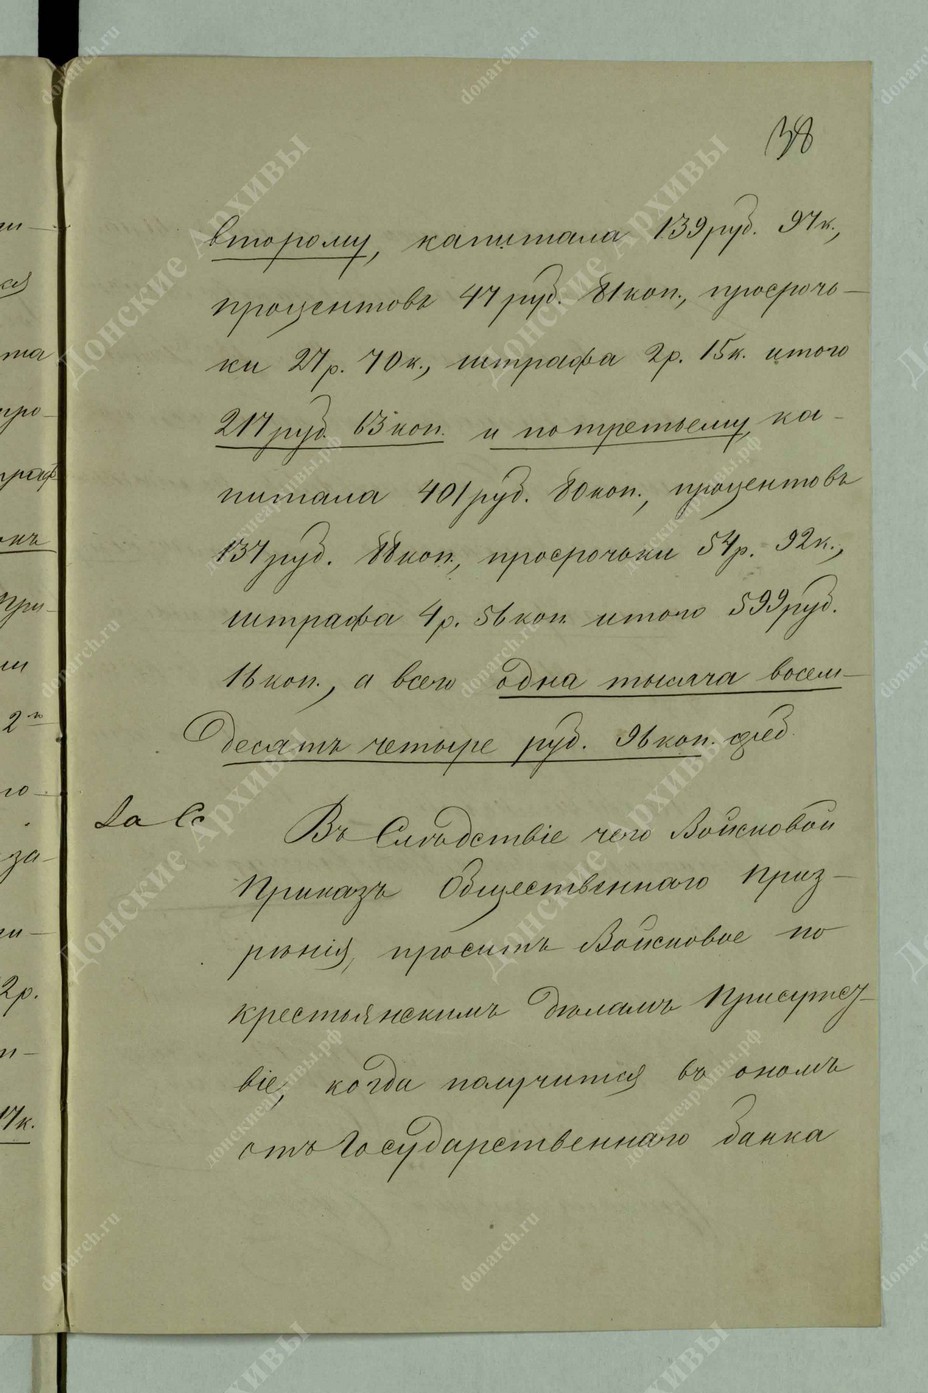 38
второму, капитала 139 руб. 97 к.,
процентовъ 47 руб. 81 коп., просроч-
ки 27 р. 70 к., штрафа 2 р. 15 к. итого
217 руб. 63 коп. и по третьему, ка-
питала 401 руб. 80 коп., процентовъ
137 руб. 88 коп., просрочки 54 р. 92 к.,
штрафа 4 р. 56 коп. итого 599 руб.
16 коп., а всего одна тысяча восем-
десятъ четыре руб. 96 коп.
Въ Слѣдствіе чего Войсковой
Приказъ Общественнаго Приз-
рѣнія, проситъ Войсковое по
крестьянскимъ дѣламъ Присутст-
віе, когда получится въ ономъ
отъ Государственнаго банка